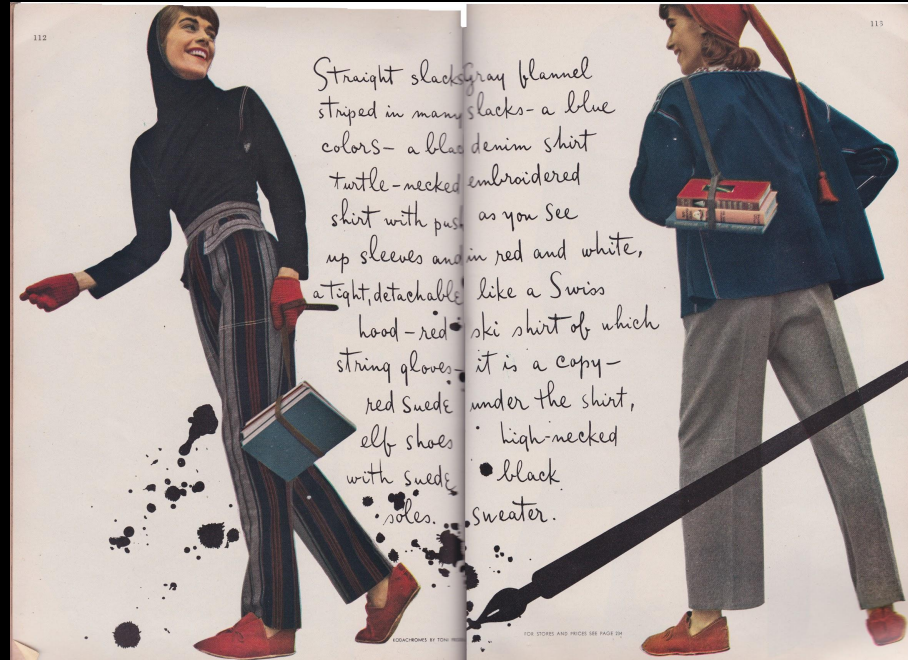 112
Straight slacks
striped in many
colors— a blac
turtle-necked
shirt with push
up sleeves and
a tight, detachable
hood—red
string gloves—
red suede
elf shoes
with suede
soles.
KODACHROMES BY TONI
113
Gray flannel
slacks- a blue
denim shirt
embroidered
as you see
in red and white,
like a Swiss
ski shirt of which
it is a copy—
under the shirt,
high-necked
black
sweater.
FOR STORES AND PRICES SEE PAGE